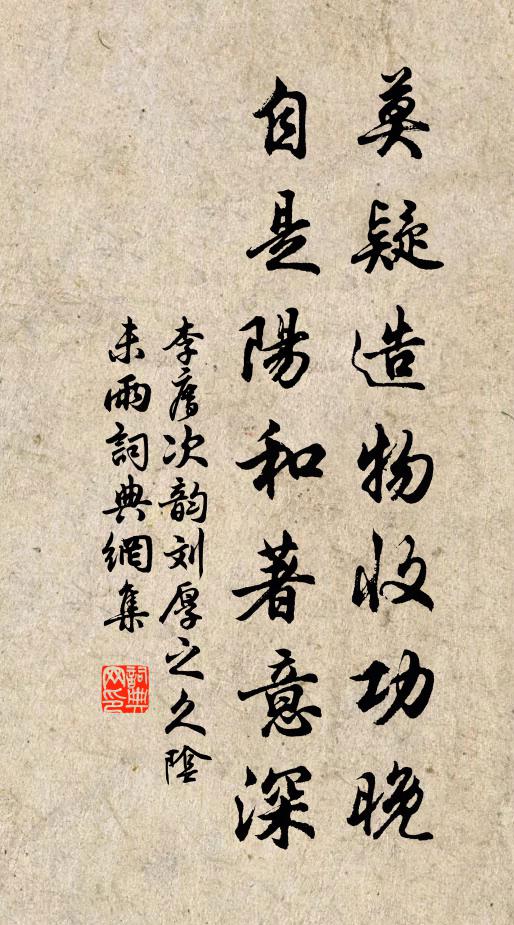 莫疑造物收功晚
自是陽和著意深
李次韵刘厚之久陰
未雨詞典網集
詞典
网印